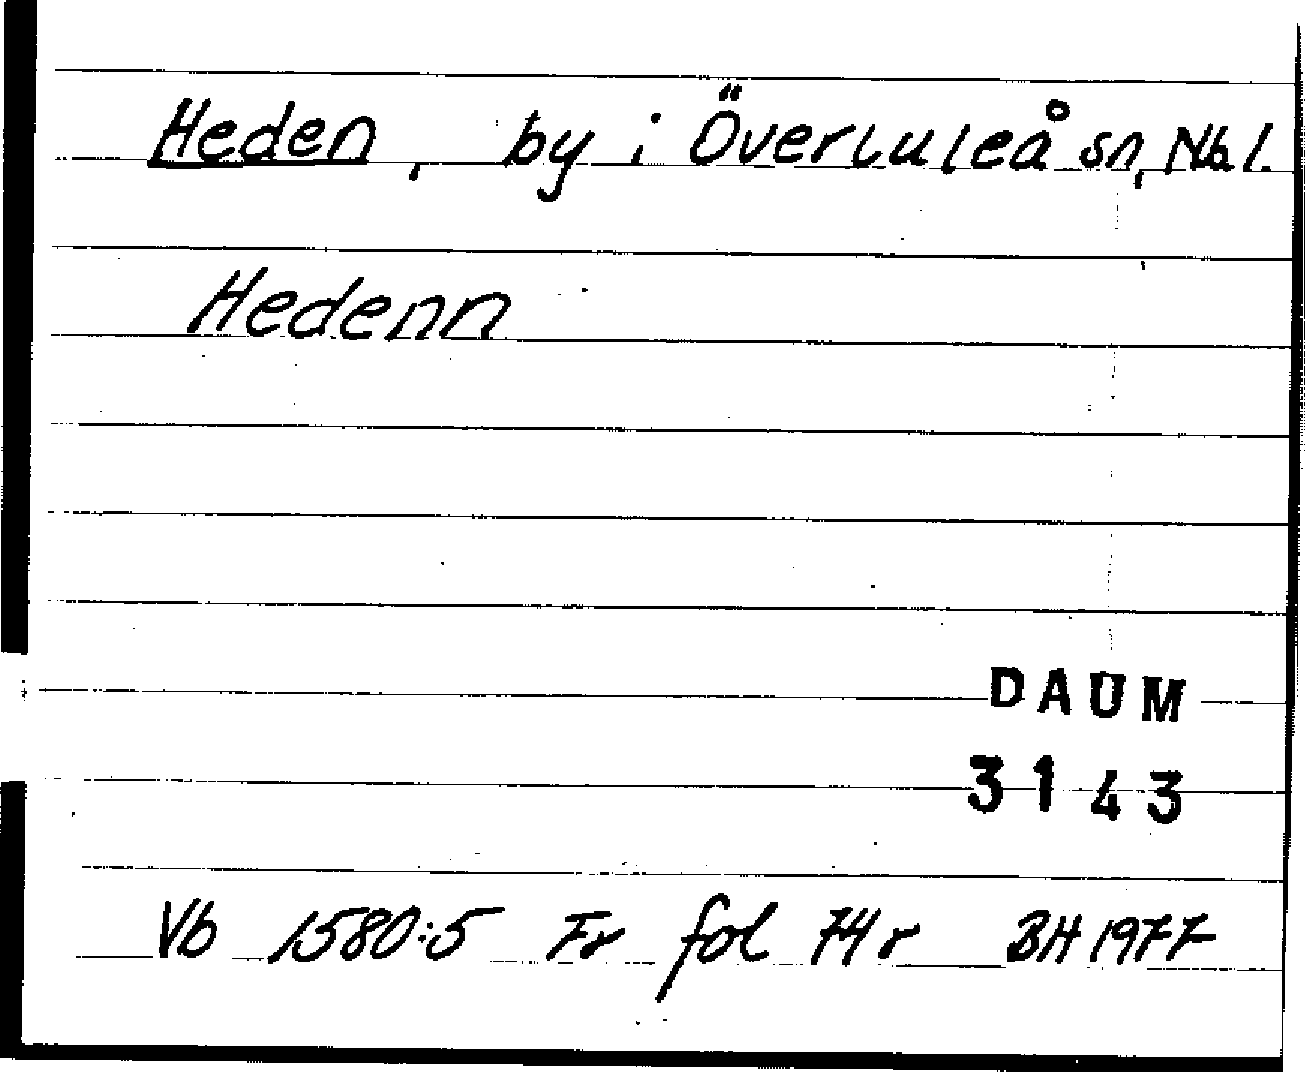 Heden, by i Överluleå sn, Nb l.
Hedenn
DAUM
3143
Vb 1580:5 Fr fol 74 r BH 1977